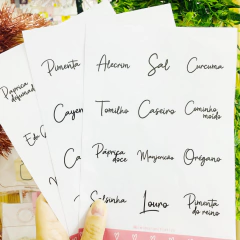 Páprica
defumada
Pimenta
Cayen
Ca
Alecrim
Sal
Curcuma
Tomilho
Caseiro
Cominho
moído
Páprica
doce
Manjericão
Orégano
Salsinha
Louro
Pimenta
do reino